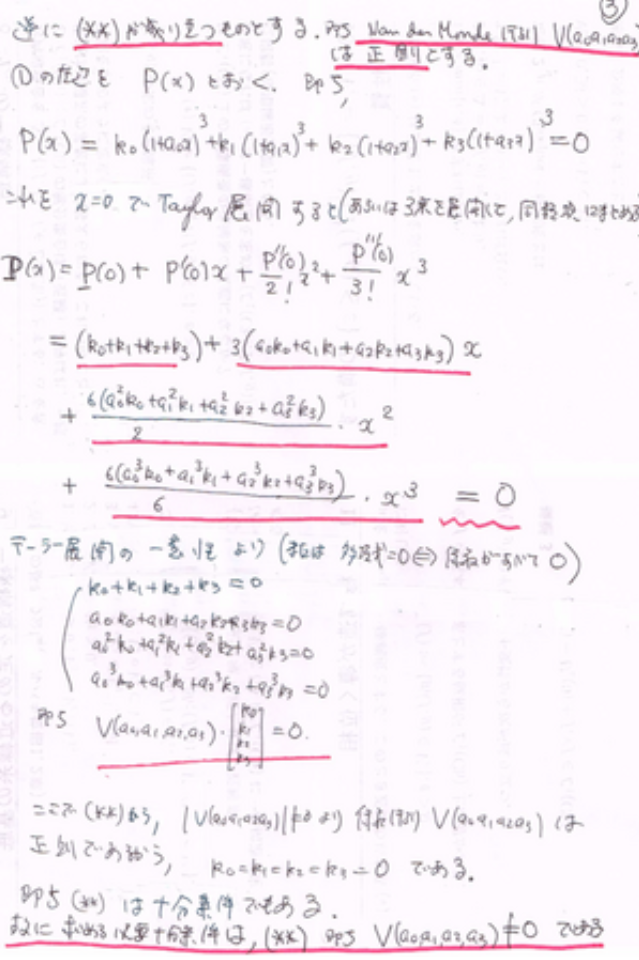 ③
逆に (**) が成り立つものとする. 即ち Van der Monde 行列 V(a₀a₁a₂a₃)
は正則とする.
①の左辺を P(x) とおく. 即ち,
P(x) = k₀(1+a₀x)³+k₁(1+a₁x)³+k₂(1+a₂x)³+k₃(1+a₃x)³=0
これを x=0 で Taylor 展開すると(あるいは3乗を展開して, 同類項にまとめる
P(x)=P(0)+P'(0)x+P''(0)/2! x²+P'''(0)/3! x³
=(k₀+k₁+k₂+k₃)+3(a₀k₀+a₁k₁+a₂k₂+a₃k₃)x
+ 6(a₀²k₀+a₁²k₁+a₂²k₂+a₃²k₃)/2 · x²
+ 6(a₀³k₀+a₁³k₁+a₂³k₂+a₃³k₃)/6 · x³ = 0
テーラー展開の一意性より (或は 多項式=0⇔係数がすべて0)
k₀+k₁+k₂+k₃=0
a₀k₀+a₁k₁+a₂k₂+a₃k₃=0
a₀²k₀+a₁²k₁+a₂²k₂+a₃²k₃=0
a₀³k₀+a₁³k₁+a₂³k₂+a₃³k₃=0
即ち V(a₀,a₁,a₂,a₃)·[k₀ k₁ k₂ k₃]=0.
ここで (**) から, |V(a₀a₁a₂a₃)|≠0 より 係数行列 V(a₀a₁a₂a₃) は
正則であるから, k₀=k₁=k₂=k₃=0 である.
即ち (**) は十分条件でもある.
故に 求める必要十分条件は, (**) 即ち V(a₀,a₁,a₂,a₃)≠0 である